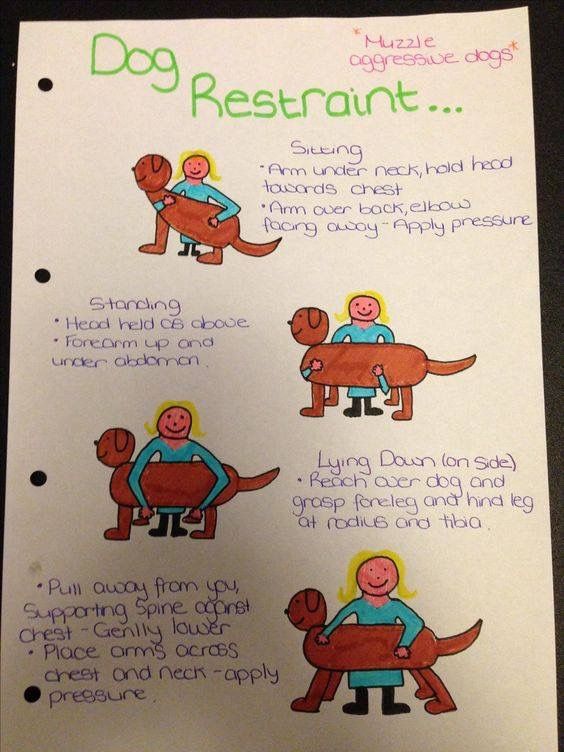 Dog
Restraint...
*Muzzle
aggressive dogs*
Sitting
• Arm under neck, hold head
towards chest
• Arm over back, elbow
facing away - Apply pressure
Standing
• Head held as above
• Forearm up and
under abdomen.
Lying Down (on side)
• Reach over dog and
grasp foreleg and hind leg
at radius and tibia.
• Pull away from you,
supporting spine against
chest - Genlly lower
• Place arms across
chest and neck - apply
pressure.